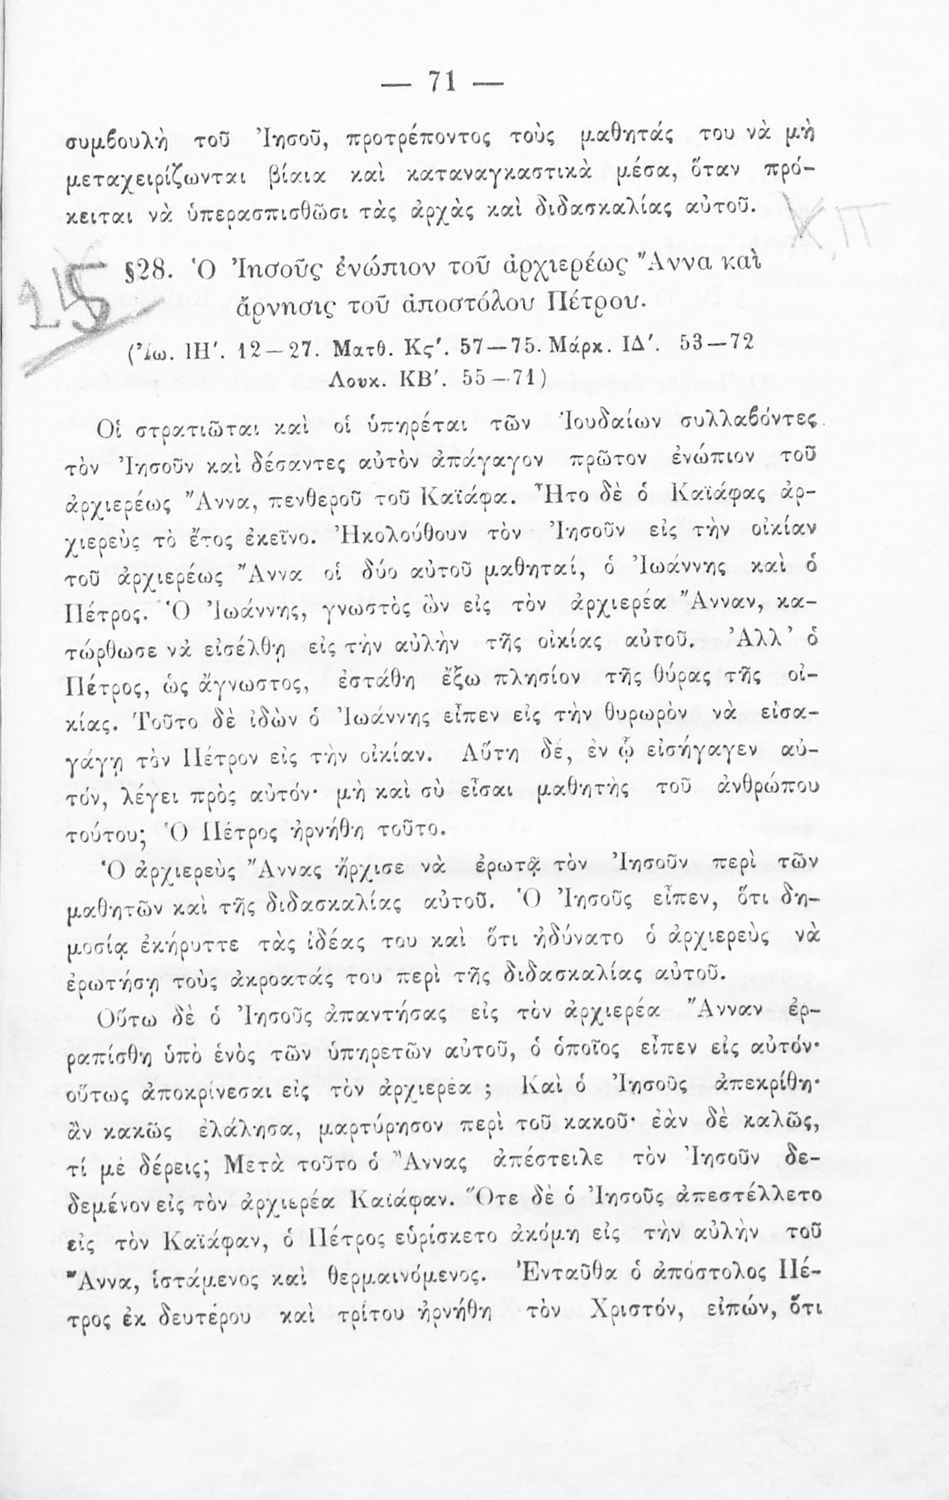 — 71 —
συμβουλὴ τοῦ Ἰησοῦ, προτρέποντος τοὺς μαθητάς του νὰ μὴ
μεταχειρίζωνται βίαια καὶ καταναγκαστικὰ μέσα, ὅταν πρό-
κειται νὰ ὑπερασπισθῶσι τὰς ἀρχὰς καὶ διδασκαλίας αὐτοῦ.
§28. Ὁ Ἰησοῦς ἐνώπιον τοῦ ἀρχιερέως Ἄννα καὶ
ἄρνησις τοῦ ἀποστόλου Πέτρου.
(Ἰω. ΙΗ΄. 12—27. Ματθ. Κς΄. 57—75. Μάρκ. ΙΔ΄. 53—72
Λουκ. ΚΒ΄. 55—71)
Οἱ στρατιῶται καὶ οἱ ὑπηρέται τῶν Ἰουδαίων συλλαβόντες
τὸν Ἰησοῦν καὶ δέσαντες αὐτὸν ἀπάγαγον πρῶτον ἐνώπιον τοῦ
ἀρχιερέως Ἄννα, πενθεροῦ τοῦ Καϊάφα. Ἦτο δὲ ὁ Καϊάφας ἀρ-
χιερεὺς τὸ ἔτος ἐκεῖνο. Ἠκολούθουν τὸν Ἰησοῦν εἰς τὴν οἰκίαν
τοῦ ἀρχιερέως Ἄννα οἱ δύο αὐτοῦ μαθηταί, ὁ Ἰωάννης καὶ ὁ
Πέτρος. Ὁ Ἰωάννης, γνωστὸς ὢν εἰς τὸν ἀρχιερέα Ἄνναν, κα-
τώρθωσε νὰ εἰσέλθῃ εἰς τὴν αὐλὴν τῆς οἰκίας αὐτοῦ. Ἀλλ᾽ ὁ
Πέτρος, ὡς ἄγνωστος, ἐστάθη ἔξω πλησίον τῆς θύρας τῆς οἰ-
κίας. Τοῦτο δὲ ἰδὼν ὁ Ἰωάννης εἶπεν εἰς τὴν θυρωρὸν νὰ εἰσα-
γάγῃ τὸν Πέτρον εἰς τὴν οἰκίαν. Αὕτη δέ, ἐν ᾧ εἰσήγαγεν αὐ-
τόν, λέγει πρὸς αὐτόν· μὴ καὶ σὺ εἶσαι μαθητὴς τοῦ ἀνθρώπου
τούτου; Ὁ Πέτρος ἠρνήθη τοῦτο.
Ὁ ἀρχιερεὺς Ἄννας ἤρχισε νὰ ἐρωτᾷ τὸν Ἰησοῦν περὶ τῶν
μαθητῶν καὶ τῆς διδασκαλίας αὐτοῦ. Ὁ Ἰησοῦς εἶπεν, ὅτι δη-
μοσίᾳ ἐκήρυττε τὰς ἰδέας του καὶ ὅτι ἠδύνατο ὁ ἀρχιερεὺς νὰ
ἐρωτήσῃ τοὺς ἀκροατάς του περὶ τῆς διδασκαλίας αὐτοῦ.
Οὕτω δὲ ὁ Ἰησοῦς ἀπαντήσας εἰς τὸν ἀρχιερέα Ἄνναν ἐρ-
ραπίσθη ὑπὸ ἑνὸς τῶν ὑπηρετῶν αὐτοῦ, ὁ ὁποῖος εἶπεν εἰς αὐτόν·
οὕτως ἀποκρίνεσαι εἰς τὸν ἀρχιερέα ; Καὶ ὁ Ἰησοῦς ἀπεκρίθη·
ἂν κακῶς ἐλάλησα, μαρτύρησον περὶ τοῦ κακοῦ· ἐὰν δὲ καλῶς,
τί μὲ δέρεις; Μετὰ τοῦτο ὁ Ἄννας ἀπέστειλε τὸν Ἰησοῦν δε-
δεμένον εἰς τὸν ἀρχιερέα Καϊάφαν. Ὅτε δὲ ὁ Ἰησοῦς ἀπεστέλλετο
εἰς τὸν Καϊάφαν, ὁ Πέτρος εὑρίσκετο ἀκόμη εἰς τὴν αὐλὴν τοῦ
Ἄννα, ἱστάμενος καὶ θερμαινόμενος. Ἐνταῦθα ὁ ἀπόστολος Πέ-
τρος ἐκ δευτέρου καὶ τρίτου ἠρνήθη τὸν Χριστόν, εἰπών, ὅτι